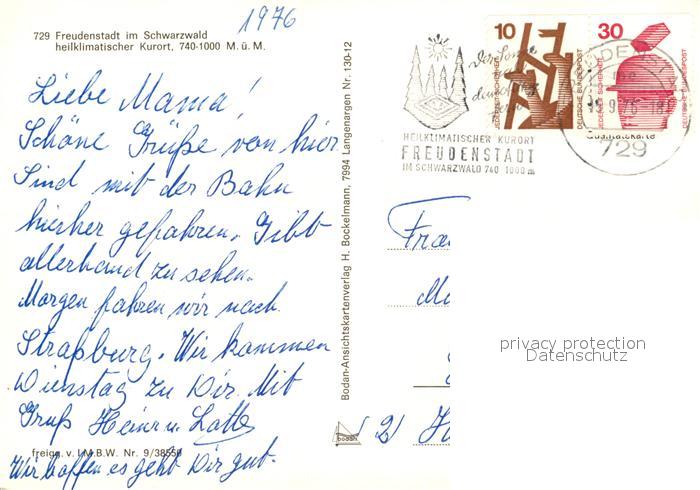 1976
729 Freudenstadt im Schwarzwald
heilklimatischer Kurort, 740-1000 M. ü. M.
Liebe Mama!
Schöne Grüße von hier
Sind mit der Bahn
hierher gefahren. Gibt
allerhand zu sehen.
Morgen fahren wir nach
Straßburg. Wir kommen
Dienstag zu Dir. Mit
Gruß Heinr u. Lotte
freigg. v. I.M.B.W. Nr. 9/38550
Wir hoffen es geht Dir gut.
Bodan-Ansichtskartenverlag H. Bockelmann, 7994 Langenargen Nr. 130-12
bodan
der Sonne
HEILKLIMATISCHER KURORT
FREUDENSTADT
IM SCHWARZWALD 740 1000 m
10
JEDERZEIT SICHERHEIT
DEUTSCHE BUNDESPOST
30
JEDERZEIT SICHERHEIT
DEUTSCHE BUNDESPOST
9.76
729
Fra
2)
privacy protection
Datenschutz